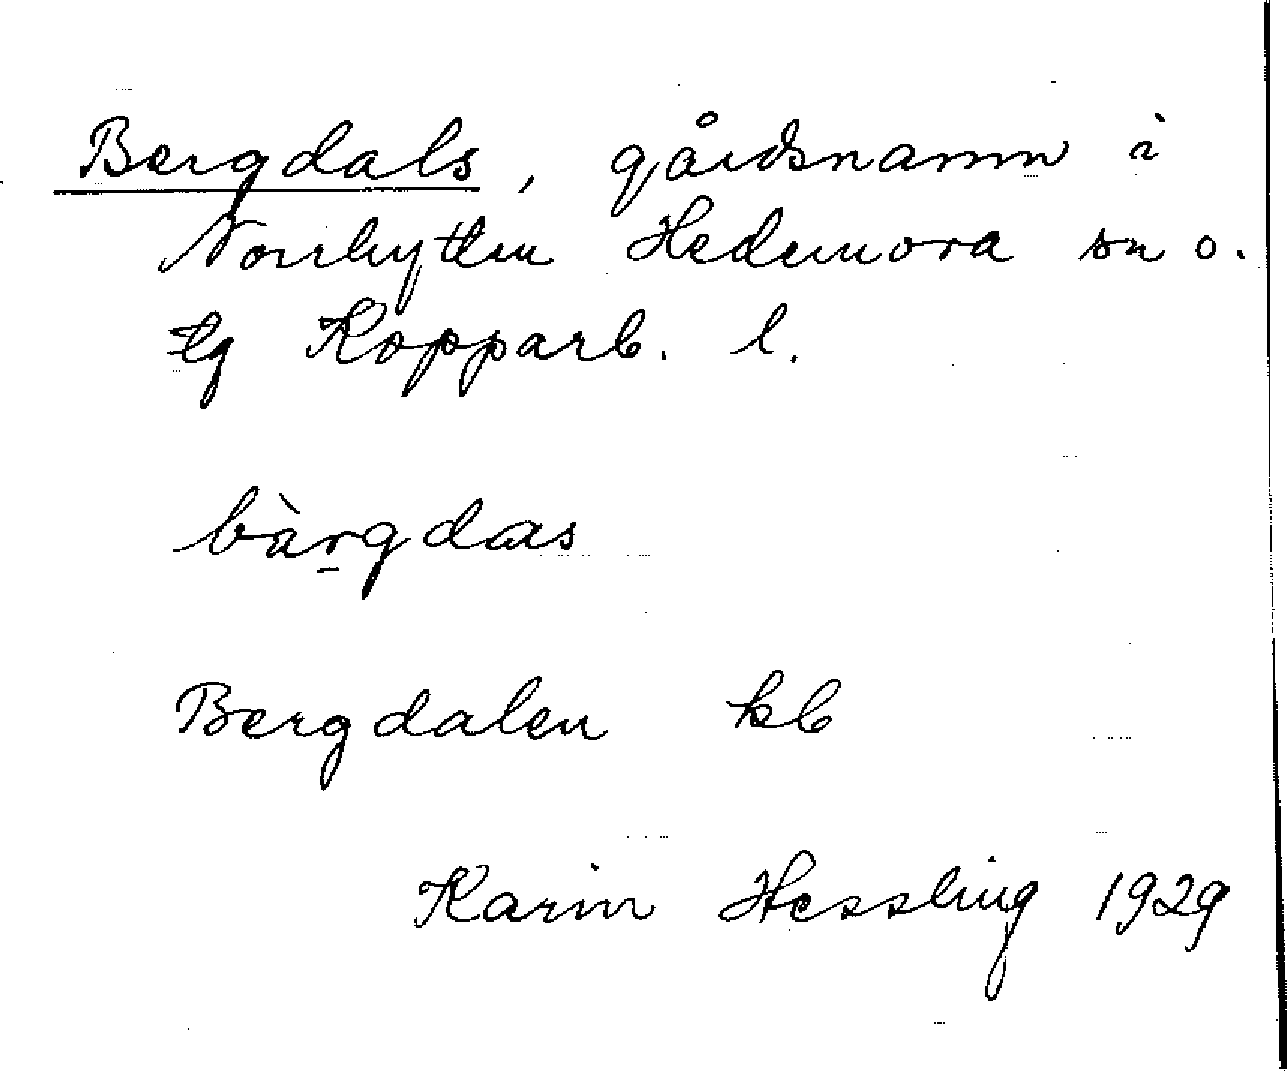 Bergdals, gårdsnamn i
Norrhyttan Hedemora sn o.
tg Kopparb. l.
bàr̠gdas
Bergdalen kb
Karin Hessling 1929